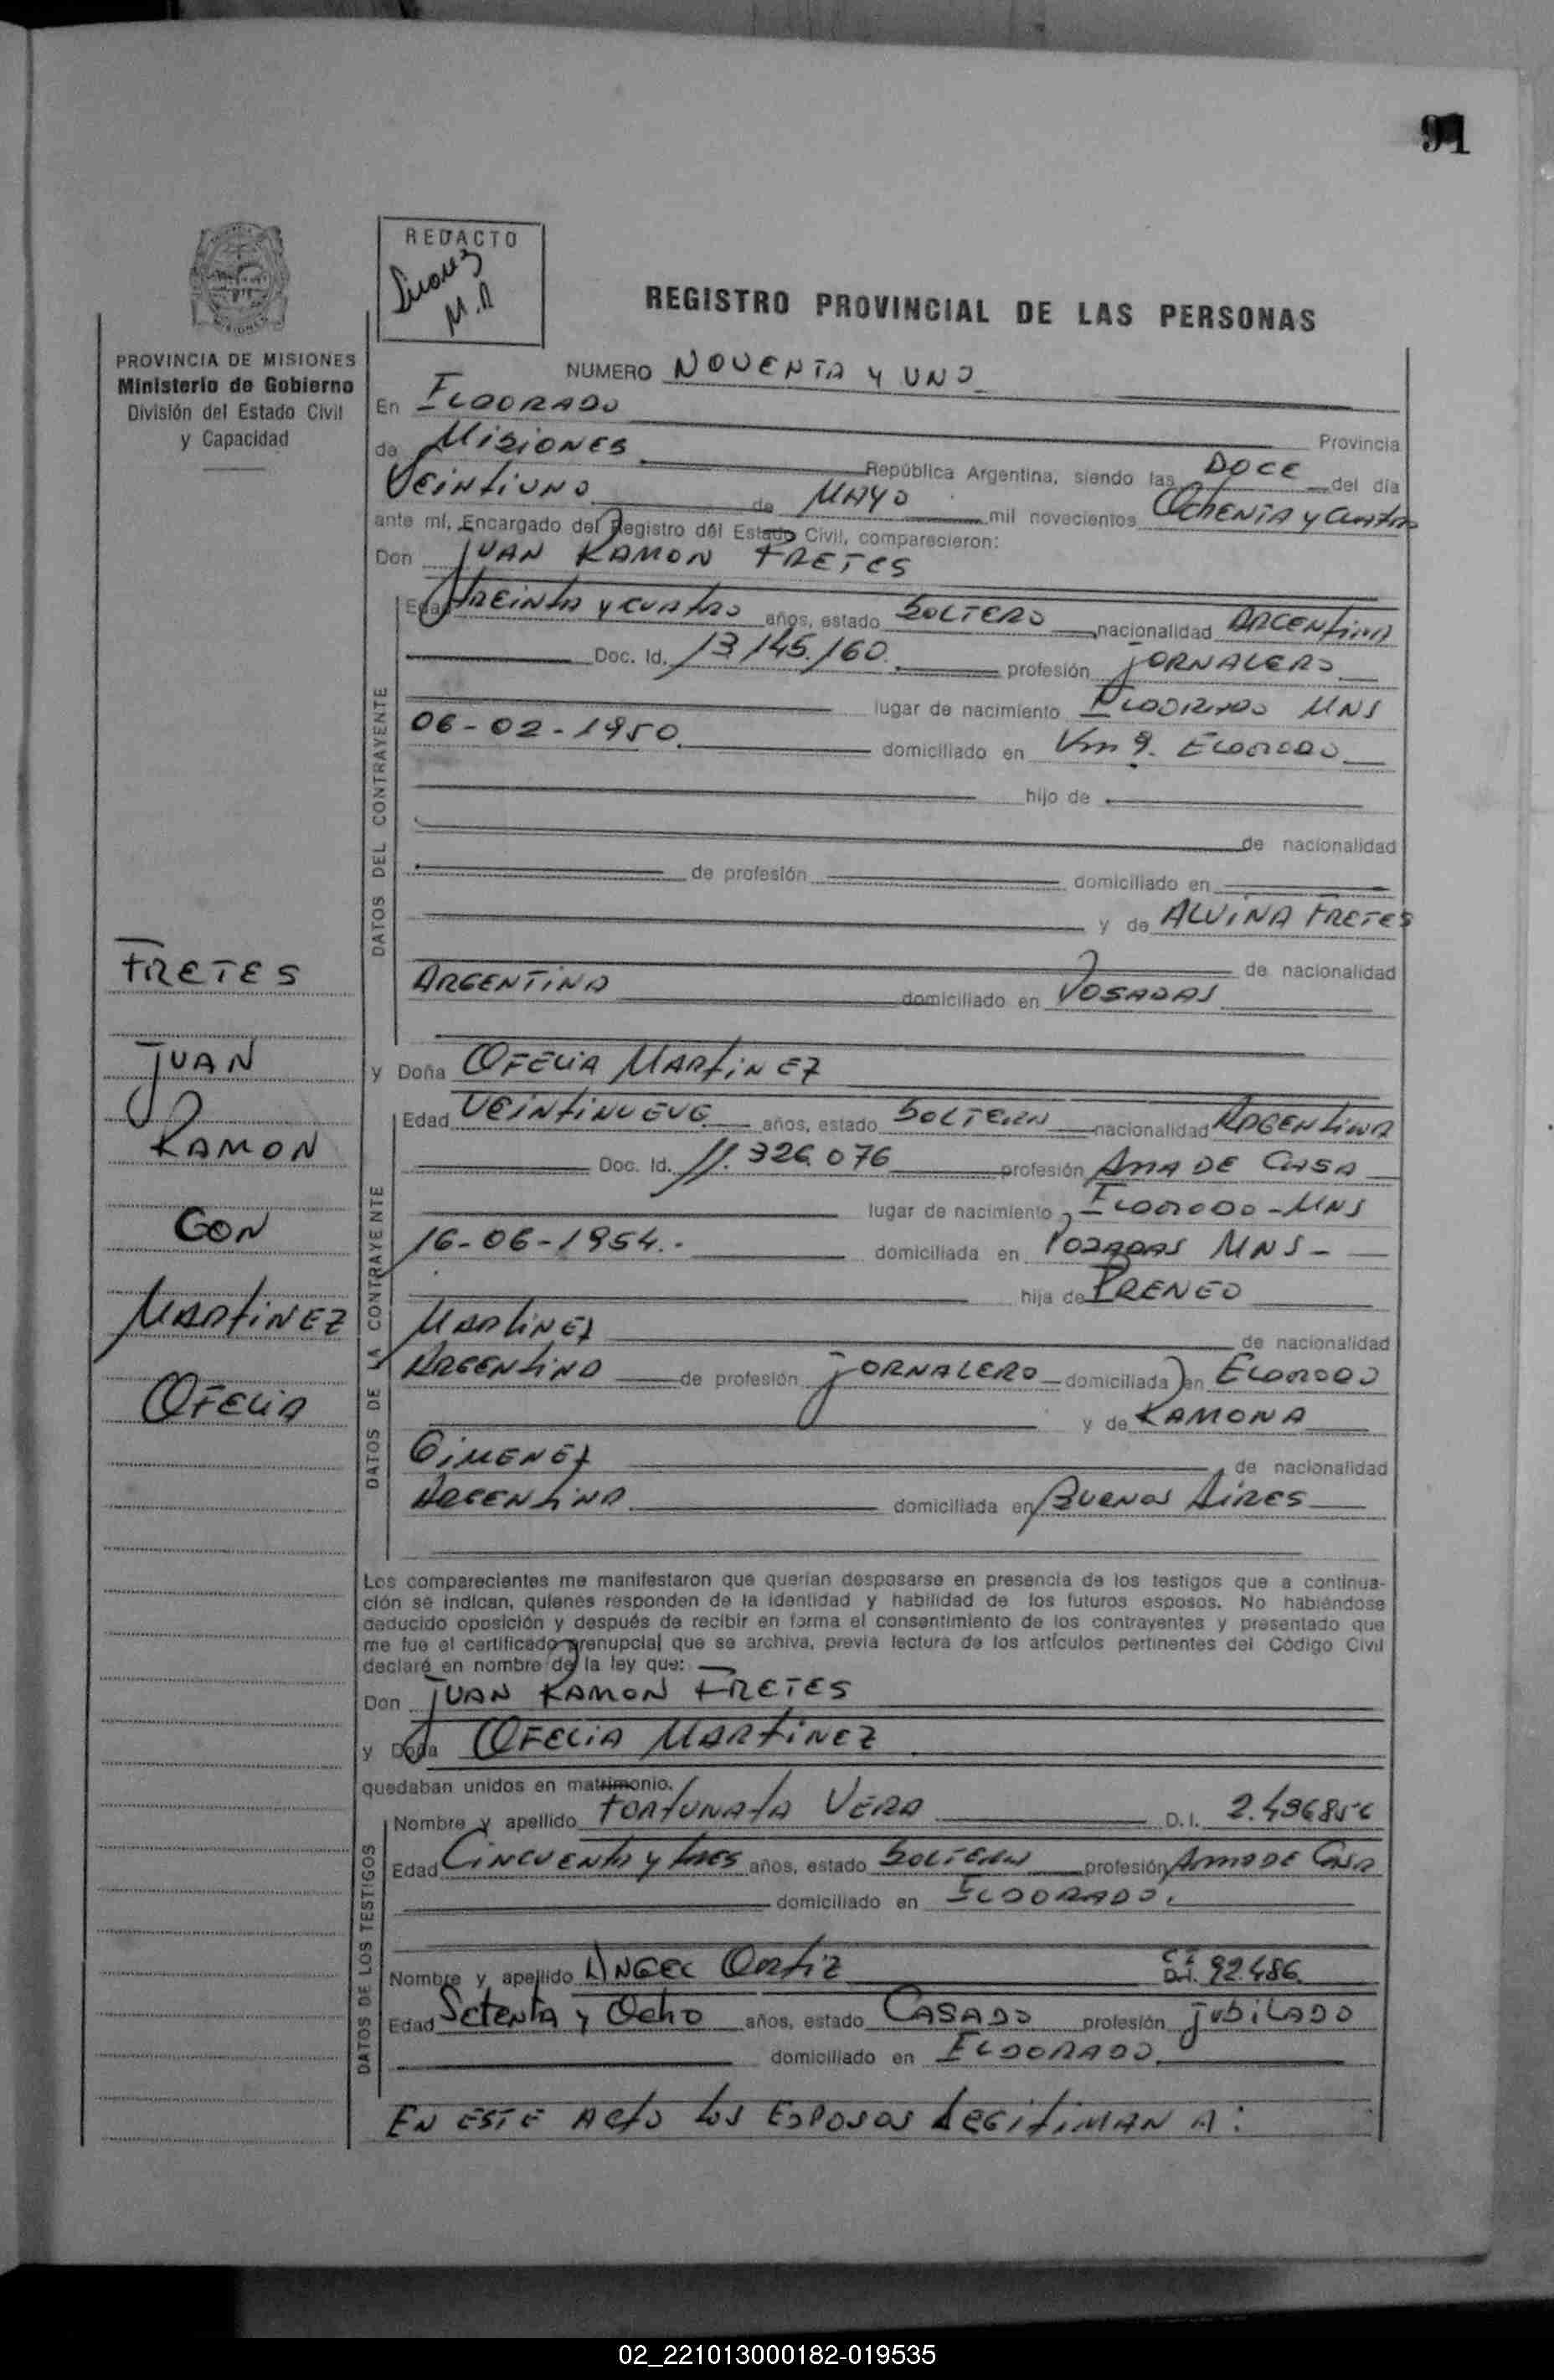 91
REDACTO
Suarez
M.A
REGISTRO PROVINCIAL DE LAS PERSONAS
PROVINCIA DE MISIONES
Ministerio de Gobierno
División del Estado Civil
y Capacidad
NUMERO NOVENTA Y UNO
En ELDORADO Provincia
de MISIONES República Argentina, siendo las DOCE del día
VEINTIUNO de MAYO mil novecientos OCHENTA Y CUATRO
ante mí, Encargado del Registro del Estado Civil, comparecieron:
Don JUAN RAMON FRETES
Edad TREINTA Y CUATRO años, estado SOLTERO nacionalidad ARGENTINA
Doc. Id. 13.145.160. profesión JORNALERO
lugar de nacimiento ELDORADO MNS
06-02-1950 domiciliado en Km 9. ELDORADO
hijo de
de nacionalidad
de profesión domiciliado en
y de ALVINA FRETES
de nacionalidad
ARGENTINA domiciliado en POSADAS
DATOS DEL CONTRAYENTE
y Doña OFELIA MARTINEZ
Edad VEINTINUEVE años, estado SOLTERA nacionalidad ARGENTINA
Doc. Id. 11.326.076 profesión AMA DE CASA
lugar de nacimiento ELDORADO-MNS
16-06-1954.- domiciliada en POSADAS MNS-
hija de IRENEO
MARTINEZ de nacionalidad
ARGENTINO de profesión JORNALERO domiciliada en ELDORADO
y de RAMONA
GIMENEZ de nacionalidad
ARGENTINA domiciliada en BUENOS AIRES
DATOS DE LA CONTRAYENTE
FRETES
JUAN
RAMON
CON
MARTINEZ
OFELIA
Los comparecientes me manifestaron que querían desposarse en presencia de los testigos que a continua-
ción se indican, quienes responden de la identidad y habilidad de los futuros esposos. No habiéndose
deducido oposición y después de recibir en forma el consentimiento de los contrayentes y presentado que
me fue el certificado prenupcial que se archiva, previa lectura de los artículos pertinentes del Código Civil
declaré en nombre de la ley que:
Don JUAN RAMON FRETES
y Doña OFELIA MARTINEZ
quedaban unidos en matrimonio.
Nombre y apellido FORTUNATA VERA D.I. 2.496.856
Edad CINCUENTA Y TRES años, estado SOLTERA profesión AMA DE CASA
domiciliado en ELDORADO.
Nombre y apellido ANGEL ORTIZ C.I. D.I. 92.486
Edad SETENTA Y OCHO años, estado CASADO profesión JUBILADO
domiciliado en ELDORADO.
DATOS DE LOS TESTIGOS
EN ESTE ACTO LOS ESPOSOS LEGITIMAN A:
02_221013000182-019535